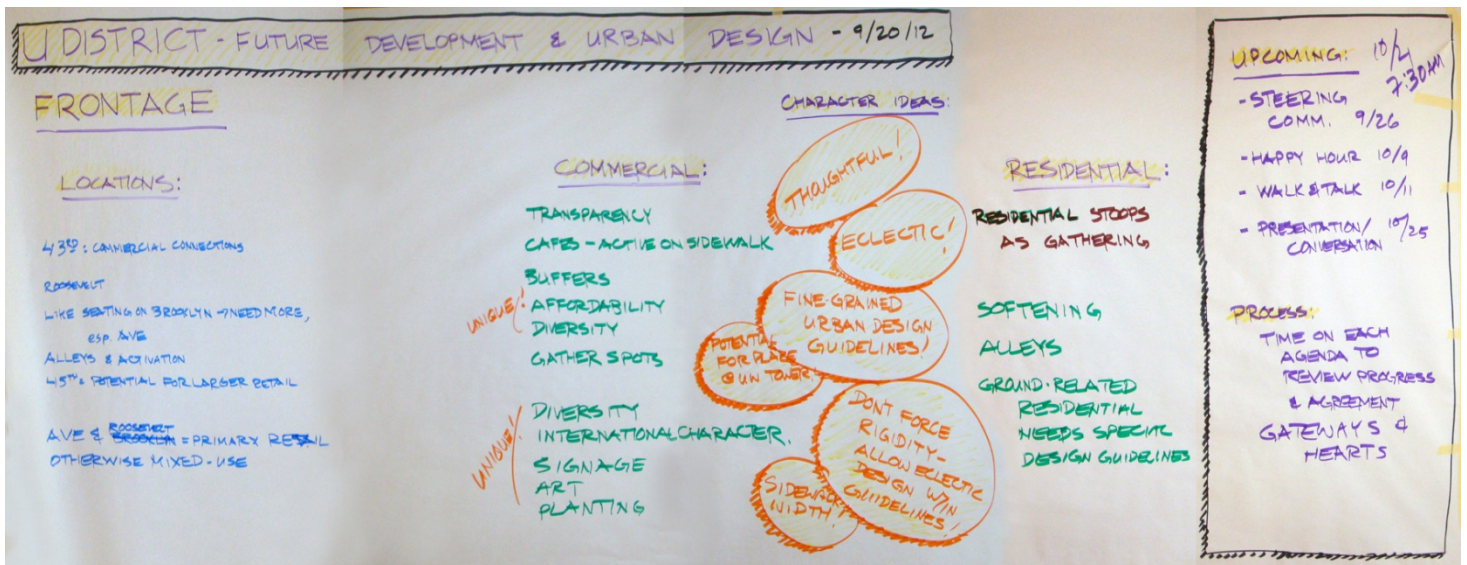 U DISTRICT - FUTURE DEVELOPMENT & URBAN DESIGN - 9/20/12
FRONTAGE
LOCATIONS:
43RD: COMMERCIAL CONNECTIONS
ROOSEVELT
LIKE SEATING ON BROOKLYN → NEED MORE,
esp. AVE
ALLEYS & ACTIVATION
45TH = POTENTIAL FOR LARGER RETAIL
ROOSEVELT
AVE & BROOKLYN = PRIMARY RETAIL
OTHERWISE MIXED-USE
COMMERCIAL:
TRANSPARENCY
CAFES - ACTIVE ON SIDEWALK
BUFFERS
UNIQUE! AFFORDABILITY
DIVERSITY
GATHER SPOTS
UNIQUE! DIVERSITY
INTERNATIONAL CHARACTER.
SIGNAGE
ART
PLANTING
CHARACTER IDEAS:
THOUGHTFUL!
ECLECTIC!
FINE-GRAINED
URBAN DESIGN
GUIDELINES!
POTENTIAL
FOR PLACE
@ UW TOWER!
DONT FORCE
RIGIDITY-
ALLOW ECLECTIC
DESIGN W/IN
GUIDELINES!
SIDEWALK
WIDTH!
RESIDENTIAL:
RESIDENTIAL STOOPS
AS GATHERING
SOFTENING
ALLEYS
GROUND-RELATED
RESIDENTIAL
NEEDS SPECIAL
DESIGN GUIDELINES
UPCOMING: 10/2
7:30AM
- STEERING
COMM. 9/26
- HAPPY HOUR 10/9
- WALK & TALK 10/11
- PRESENTATION/ 10/25
CONVERSATION
PROCESS:
TIME ON EACH
AGENDA TO
REVIEW PROGRESS
& AGREEMENT
GATEWAYS &
HEARTS